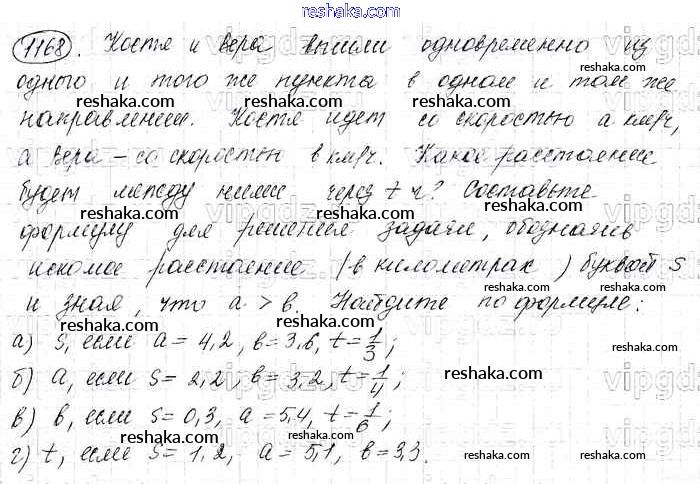 reshaka.com
1168. Костя и Вера вышли одновременно из
reshaka.com
одного и того же пункта в одном и том же
reshaka.com reshaka.com reshaka.com
направлении. Костя идет со скоростью a км/ч,
а Вера – со скоростью в км/ч. Какое расстояние
reshaka.com reshaka.com reshaka.com
будет между ними через t ч? Составьте
reshaka.com reshaka.com
формулу для решения задачи, обозначив
искомое расстояние (в километрах) буквой S
reshaka.com reshaka.com reshaka.com
и зная, что a > в. Найдите по формуле:
а) S, если a = 4,2, в = 3,6, t = 1/3;
reshaka.com reshaka.com
б) a, если S = 2,2, в = 3,2, t = 1/4;
reshaka.com reshaka.com
в) в, если S = 0,3, a = 5,4, t = 1/6;
reshaka.com reshaka.com
г) t, если S = 1,2, a = 5,1, в = 3,3.
reshaka.com reshaka.com